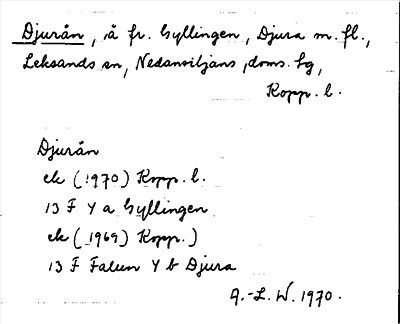 Djurån, å fr. Gyllingen, Djura m. fl.,
Leksands sn, Nedansiljans doms. tg,
Kopp. l.
Djurån
ek (1970) Kopp. l.
13 F Y a Gyllingen
ek (1969) Kopp.)
13 F Falun Y b Djura
A.-L. W. 1970.